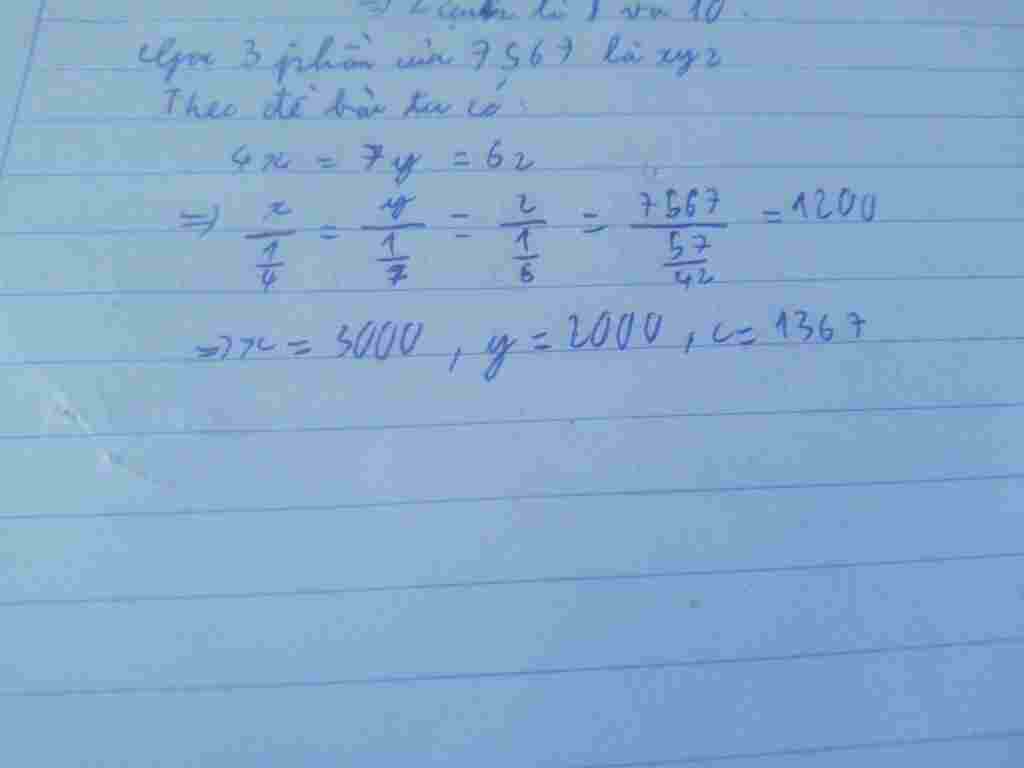 và 10.
Gọi 3 phần của 7567 là xyz
Theo đề bài ta có:
4x = 7y = 6z
=> x/(1/4) = y/(1/7) = z/(1/6) = 7567/(57/42) = 1200
=> x = 3000, y = 2000, z = 1367